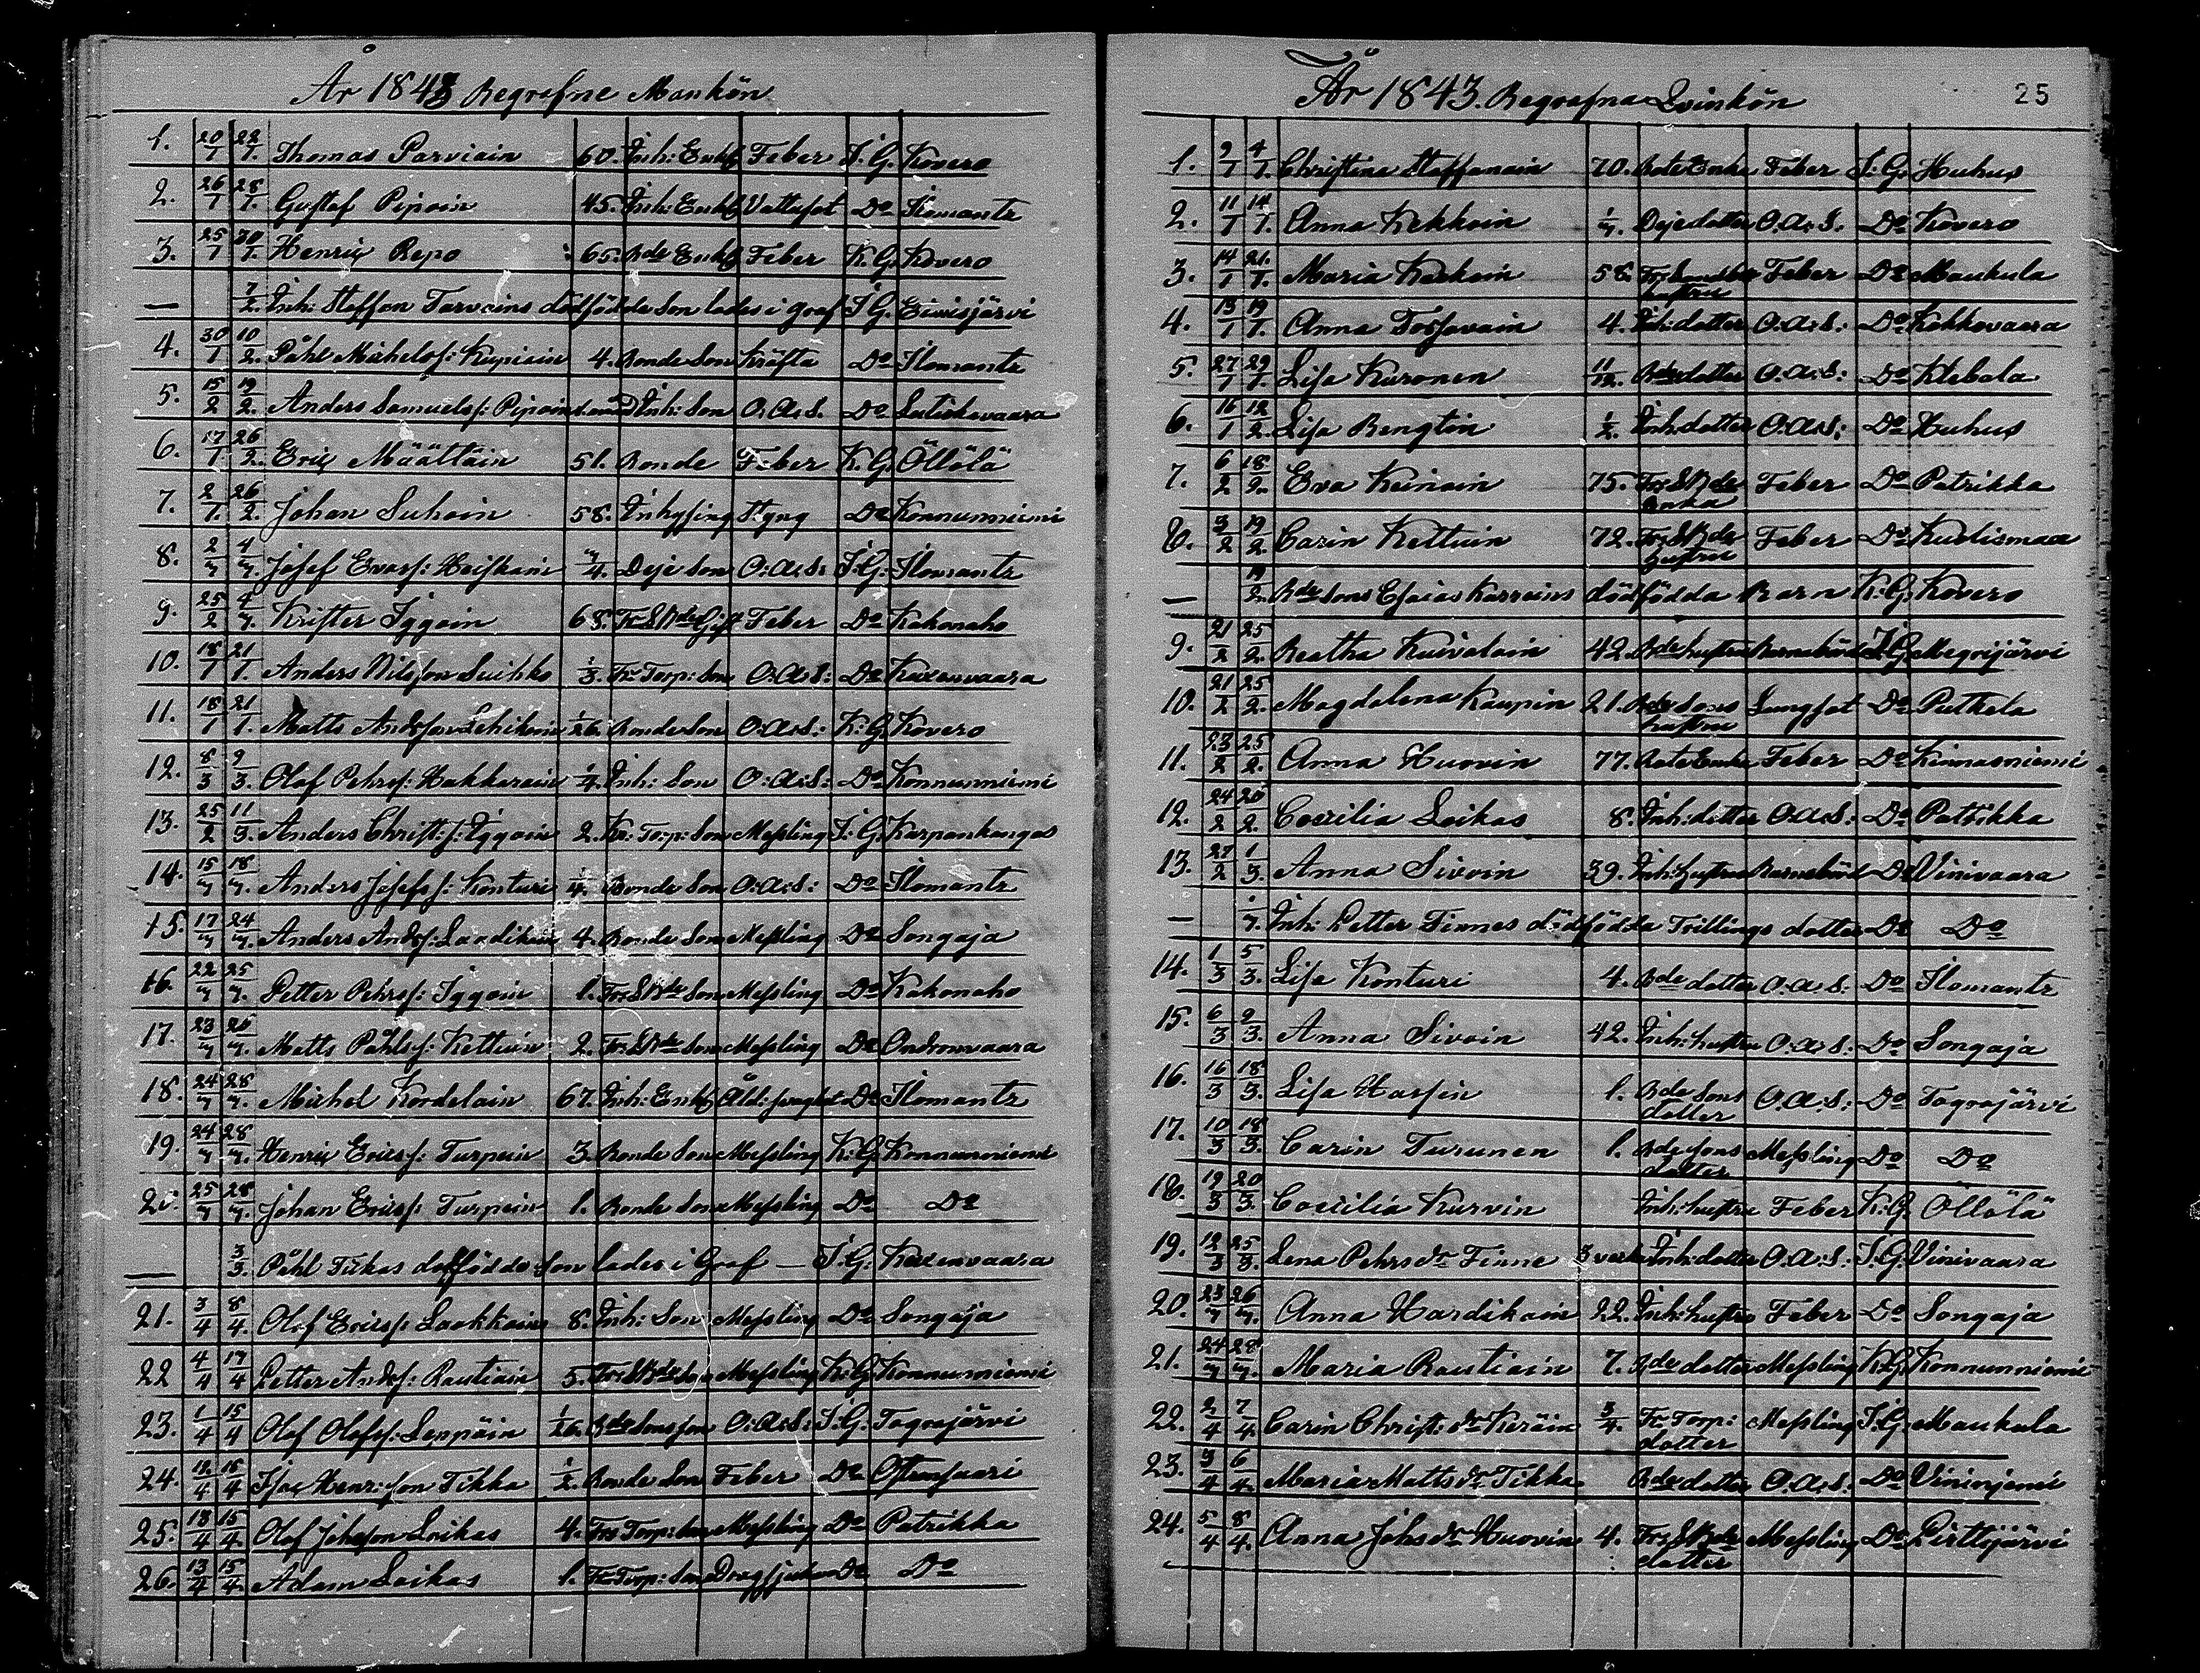 År 1843 Begrafne Mankön
1. 20/1 22/1. Thomas Parviain 60. Inh: Enkl Feber I. G. Kovero
2. 26/1 28/1. Gustaf Pipoin 45. Inh: Enkl Vattusot Do Ilomants
3. 25/1 30/1. Henric Repo 65. Bde Enkl Feber K. G. Kovero
— 7/2. Inh: Staffan Tarvains dödfödde Son lades i graf I. G.
4. 30/1 10/2. Påhl Michelss: Kupiain 4. Bonde Son Kräfta Do Ilomants
5. 15/2 19/2. Anders Samuelss: Pipoin Inh: Son O. A. S. Do
6. 17/1 26/2. Eric Määttäin 51. Bonde Feber K. G. Öllölä
7. 2/1. 26/2. Johan Suhoin 58. Inhysing Do Konnunniemi
8. 2/3 4/3. Josef Evass: Heiskain 3/4. Deje Son O: A: S: I. G. Ilomants
9. 25/2 4/3. Krister Iggoin 68. Feber Do Kakonaho
10. 18/1 21/1. Anders Nilsson Suihko 1/3. Fr: Torp: Son O: A: S: Do Kuxenvaara
11. 18/1 21/1. Matts Andersson 1/26. Bonde Son O: A: S: K: G. Kovero
12. 8/3 9/3. Olof Pehrss: Hakkarain 1/4. Inh: Son O: A: S: Do Konnunniemi
13. 25/2 11/3. Anders Christ: s: Iggoin 2. Kr: Torp: Son Messling I: G. Karpankangas
14. 15/3 18/3. Anders Josefs s: Konturi 1/4. Bonde Son O: A: S: Do Ilomants
15. 17/3 24/3. Anders Anders: 4. Bonde Son Messling Do Songaja
16. 22/3 25/3. Petter Pehrss: Iggoin 1. Fr: SBde Son Messling Do Kakonaho
17. 23/3 26/3. Matts Påhlss: Kettuin 2. Fr: SBde Son Messling Do Ondronvaara
18. 24/3 28/3. Michel Kordelain 67. Inh: Enkl Do Ilomants
19. 24/3 28/3. Henric Ericss: Turpein 3. Bonde Son Messling K: G. Konnunniemi
20. 25/3 28/3. Johan Ericss: Turpein 1. Bonde Son Messling Do Do
— 3/3. Påhl Tikas dödfödde Son lades i Graf — I. G. Kuxenvaara
21. 3/4 8/4. Olof Ericss: Laakkoin 8. Inh: Son Messling Do Songaja
22 4/4 17/4 Petter Anders: Rautiain 5. Fr: SBde Son Messling K: G. Konnunniemi
23. 1/4 15/4 Olof Olofss: Leppäin 1/26. Bde Sons son O: A: S: I. G. Tograjärvi
24. 12/4 16/4 Isac Henricsson Tikka 1/2. Bonde Son Feber Do
25. 13/4 15/4. Olof Johsson Loikas 4. Fr: Torp: Son Messling Do Patrikka
26. 13/4 15/4. Adam Loikas 1. Fr: Torp: Son Dragsjukan Do Do
År 1843. Begrafna Qvinkön 25
1. 2/1 4/1. Christina Staffanain 70. Bde Enka Feber I: G. Huhus
2. 11/1 14/1. Anna Kekkoin Deje dotter O. A: S. Do Kovero
3. 14/1 21/1. Maria Keskoin 58. hustru Feber Do Maukula
4. 13/1 19/1. Anna Tossavain 4. Inh: dotter O: A: S: Do Kokkovaara
5. 27/1 29/1. Lisa Kuronen 11/12. Bde dotter O: A: S: Do
6. 16/1 12/2. Lisa Bengtin 1/2. Inh: dotter O: A: S: Do Huhus
7. 6/2 18/2. Eva Keinoin 75. Fr: SBde Enka Feber Do Patrikka
8. 3/2 19/2. Carin Kettuin 72. Fr: SBde hustru Feber Do Kuolismaa
— 19/2. Bde sons Esaias Karvains dödfödda Barn K: G. Kovero
9. 21/2 25/2. Beatha Kuivalain 42. Bde hustru Barnsbörd I. G. Megrijärvi
10. 21/2 25/2. Magdalena Kaupin 21. Bde Sons hustru Lungsot Do Putkela
11. 23/2 25/2. Anna Huovin 77. Bde Enka Feber Do Kinnasniemi
12. 24/2 26/2. Coecilia Loikas 8. Inh: dotter O. A: S: Do Patrikka
13. 27/2 1/3. Anna Sivoin 39. Inh: hustru Barnsbörd Do Vinivaara
— 1/3. Inh: Petter Finnes dödfödda Trillings dotter Do Do
14. 1/3 5/3. Lisa Konturi 4. Bde dotter O. A: S: Do Ilomants
15. 6/3 9/3. Anna Sivoin 42. Inh: hustru O: A: S: Do Songaja
16. 16/3 18/3. Lisa Hassin 1. Bde Sons dotter O. A: S: Do Tograjärvi
17. 10/3 18/3. Carin Turunen 1. Bde sons dotter Messling Do Do
18. 19/3 20/3. Coecilia Kurvin Inh: hustru Feber K: G. Öllölä
19. 12/3 25/3. Lena Pehrs dr Finne 3 veckor Inh: dotter O. A: S: I. G. Vinivaara
20. 23/3 26/3. Anna Hardikain 22. Inh: hustru Feber Do Songaja
21. 24/3 28/3. Maria Rautiain 7. Bde dotter Messling K. G. Konnunniemi
22. 2/4 7/4. Carin Christ: dr Keräin 3/4. Fr: Torp: dotter Messling I. G. Maukula
23. 3/4 6/4. Maria Matts dr Tikka Bde dotter O. A: S: Do
24. 5/4 8/4. Anna Johs dr Huovin 4. Fr: SBde dotter Messling Do Pirttijärvi